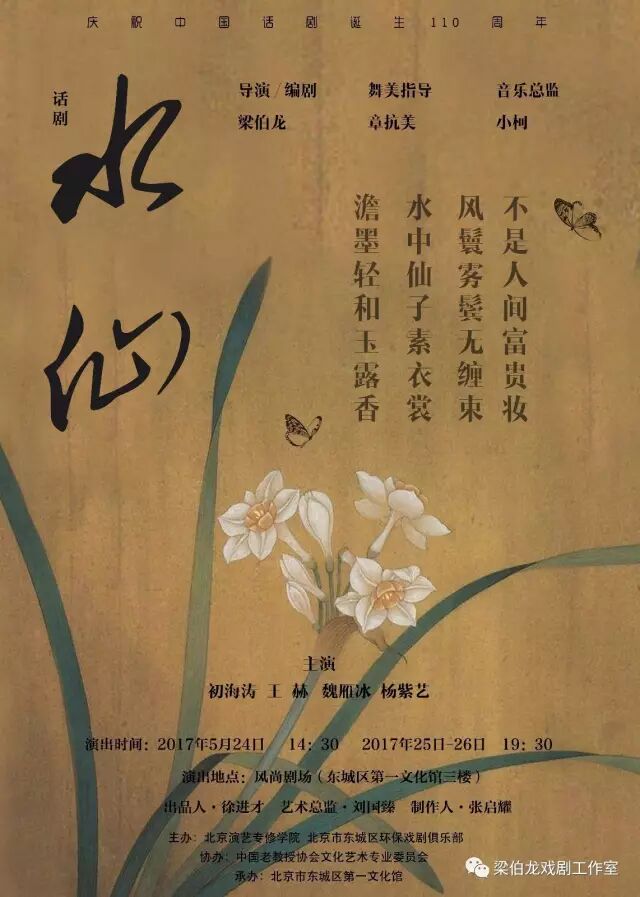 庆祝中国话剧诞生110周年
话剧
水仙
导演/编剧 舞美指导 音乐总监
梁伯龙 章抗美 小柯
不是人间富贵妆
风鬟雾鬓无缠束
水中仙子素衣裳
澹墨轻和玉露香
主演
初海涛 王 赫 魏雁冰 杨紫艺
演出时间：2017年5月24日 14：30 2017年25日-26日 19：30
演出地点：风尚剧场（东城区第一文化馆三楼）
出品人·徐进才 艺术总监·刘国臻 制作人·张启耀
主办：北京演艺专修学院 北京市东城区环保戏剧俱乐部
协办：中国老教授协会文化艺术专业委员会
承办：北京市东城区第一文化馆
梁伯龙戏剧工作室